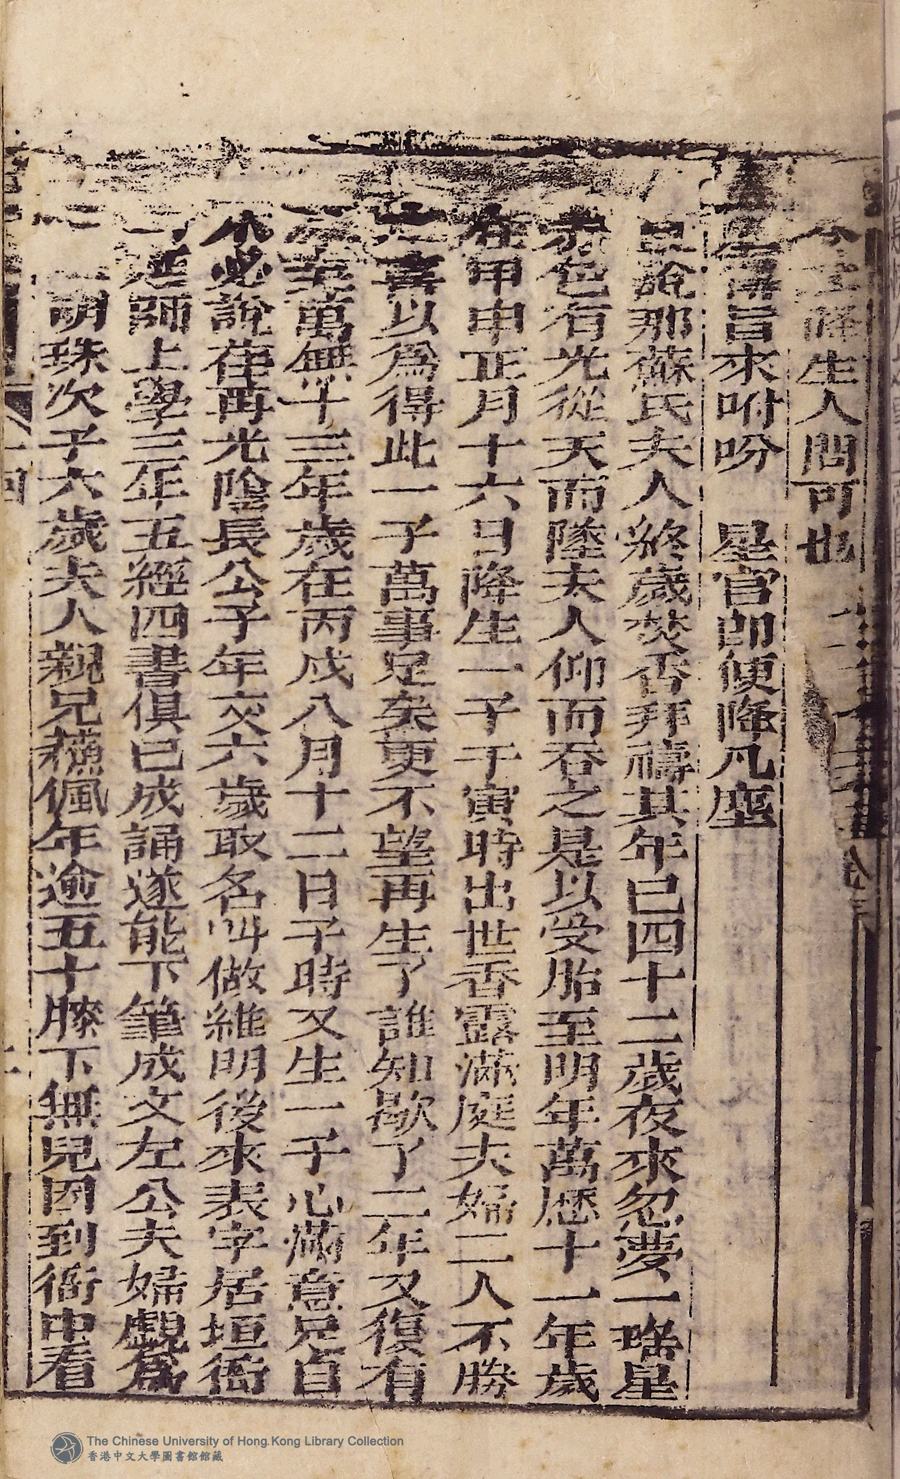 降生人間可也
旨來咐吩　星官即便降凡塵
且說那蘇氏夫人終歲焚香拜禱其年已四十二歲夜來忽夢一瑤星
赤色有光從天而墜夫人仰而吞之是以受胎至明年萬歷十一年歲
在甲申正月十六日降生一子于寅時出世香露滿庭夫婦二人不勝
之喜以爲得此一子萬事足矣更不望再生了誰知歇了二年又復有
至萬無十三年歲在丙戍八月十二日子時又生一子心滿意足自
不必說荏苒光陰長公子年交六歲取名叫做維明後來表字居垣衙
延師上學三年五經四書俱已成誦遂能下筆成文左公夫婦覷爲
明珠次子六歲夫人親兄蘓佩年逾五十膝下無兒因到衙中看
The Chinese University of Hong Kong Library Collection
香港中文大學圖書館館藏